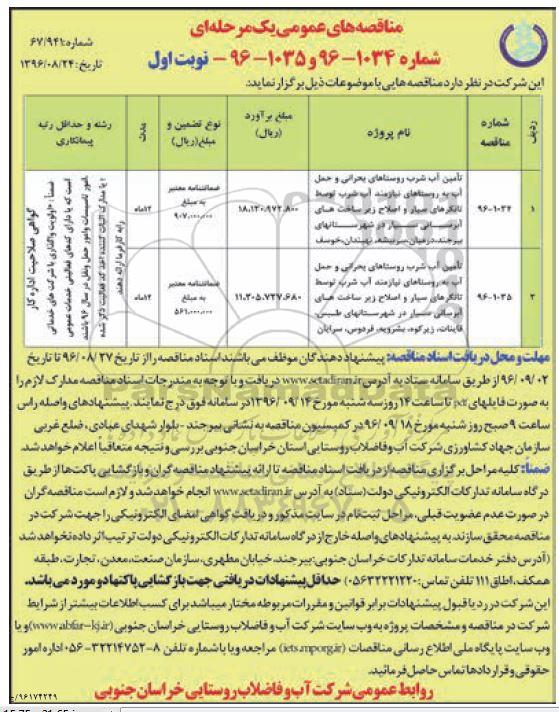 مناقصه‌های عمومی یک مرحله‌ای
شماره ۱۰۳۴-۹۶ و ۱۰۳۵-۹۶ - نوبت اول
شماره: ۶۷/۹۴۱
تاریخ: ۱۳۹۶/۰۸/۲۴
این شرکت در نظر دارد مناقصه‌هایی با موضوعات ذیل برگزار نماید:
ردیف
شماره مناقصه
نام پروژه
مبلغ برآورد (ریال)
نوع تضمین و مبلغ (ریال)
مدت
رشته و حداقل رتبه پیمانکاری
۱
۹۶-۱۰۳۴
تأمین آب شرب روستاهای بحرانی و حمل
آب به روستاهای نیازمند آب شرب توسط
تانکرهای سیار و اصلاح زیر ساخت های
آبرسانی سیار در شهرستانهای
بیرجند، درمیان، سربیشه، نهبندان، خوسف
۱۸,۱۳۰,۹۷۲,۸۰۰
ضمانتنامه معتبر
به مبلغ
۹۰۷,۰۰۰,۰۰۰
۱۲ماه
۲
۹۶-۱۰۳۵
تأمین آب شرب روستاهای بحرانی و حمل
آب به روستاهای نیازمند آب شرب توسط
تانکرهای سیار و اصلاح زیر ساخت های
آبرسانی سیار در شهرستانهای طبس،
قاینات، زیرکوه، بشرویه، فردوس، سرایان
۱۱,۲۰۵,۷۳۷,۶۸۰
ضمانتنامه معتبر
به مبلغ
۵۶۱,۰۰۰,۰۰۰
۱۲ماه
گواهی صلاحیت اداره کار
ضمناً: «اولویت واگذاری با شرکت های خدماتی
است که با دارای کدهای فعالیتی خدمات عمومی
امور تاسیسات و امور حمل ونقل در سال ۹۶ باشند.
و یا مدارک اثبات کننده اخذ کد فعالیت ذکر شده
را به کارفرما ارائه دهند.
مهلت و محل دریافت اسناد مناقصه: پیشنهاد دهندگان موظف می باشند اسناد مناقصه را از تاریخ ۹۶/۰۸/۲۷ تا تاریخ
۹۶/۰۹/۰۲ از طریق سامانه ستاد به آدرس www.setadiran.ir دریافت و با توجه به مندرجات اسناد مناقصه مدارک لازم را
به صورت فایلهای pdf تا ساعت ۱۴ روز سه شنبه مورخ ۱۳۹۶/۰۹/۱۴ در سامانه فوق درج نمایند. پیشنهادهای واصله راس
ساعت ۹ صبح روز شنبه مورخ ۹۶/۰۹/۱۸ در کمیسیون مناقصه به نشانی بیرجند - بلوار شهدای عبادی، ضلع غربی
سازمان جهاد کشاورزی شرکت آب و فاضلاب روستایی استان خراسان جنوبی بررسی و نتیجه متعاقباً اعلام خواهد شد.
ضمناً: کلیه مراحل برگزاری مناقصه از دریافت اسناد مناقصه تا ارائه پیشنهاد مناقصه گران و بازگشایی پاکت ها از طریق
درگاه سامانه تدارکات الکترونیکی دولت (ستاد) به آدرس www.setadiran.ir انجام خواهد شد و لازم است مناقصه گران
در صورت عدم عضویت قبلی، مراحل ثبت نام در سایت مذکور و دریافت گواهی امضای الکترونیکی را جهت شرکت در
مناقصه محقق سازند. به پیشنهادهای واصله خارج از درگاه سامانه تدارکات الکترونیکی دولت ترتیب اثر داده نخواهد شد
(آدرس دفتر خدمات سامانه تدارکات خراسان جنوبی: بیرجند، خیابان مطهری، سازمان صنعت، معدن، تجارت، طبقه
همکف، اطاق ۱۱۱ تلفن تماس: ۰۵۶۳۲۲۲۱۲۲۰) حداقل پیشنهادات دریافتی جهت بازگشایی پاکتها دو مورد می باشد.
این شرکت در رد یا قبول پیشنهادات برابر قوانین و مقررات مربوطه مختار میباشد برای کسب اطلاعات بیشتر از شرایط
شرکت در مناقصه و مشخصات پروژه به وب سایت شرکت آب و فاضلاب روستایی خراسان جنوبی (www.abfar-kj.ir) و یا
وب سایت پایگاه ملی اطلاع رسانی مناقصات (iets.mporg.ir) مراجعه و یا با شماره تلفن ۸-۳۲۲۱۴۷۵۲-۰۵۶ اداره امور
حقوقی و قراردادها تماس حاصل فرمائید.
روابط عمومی شرکت آب و فاضلاب روستایی خراسان جنوبی
۹۶۱۷۴۲۴۹/